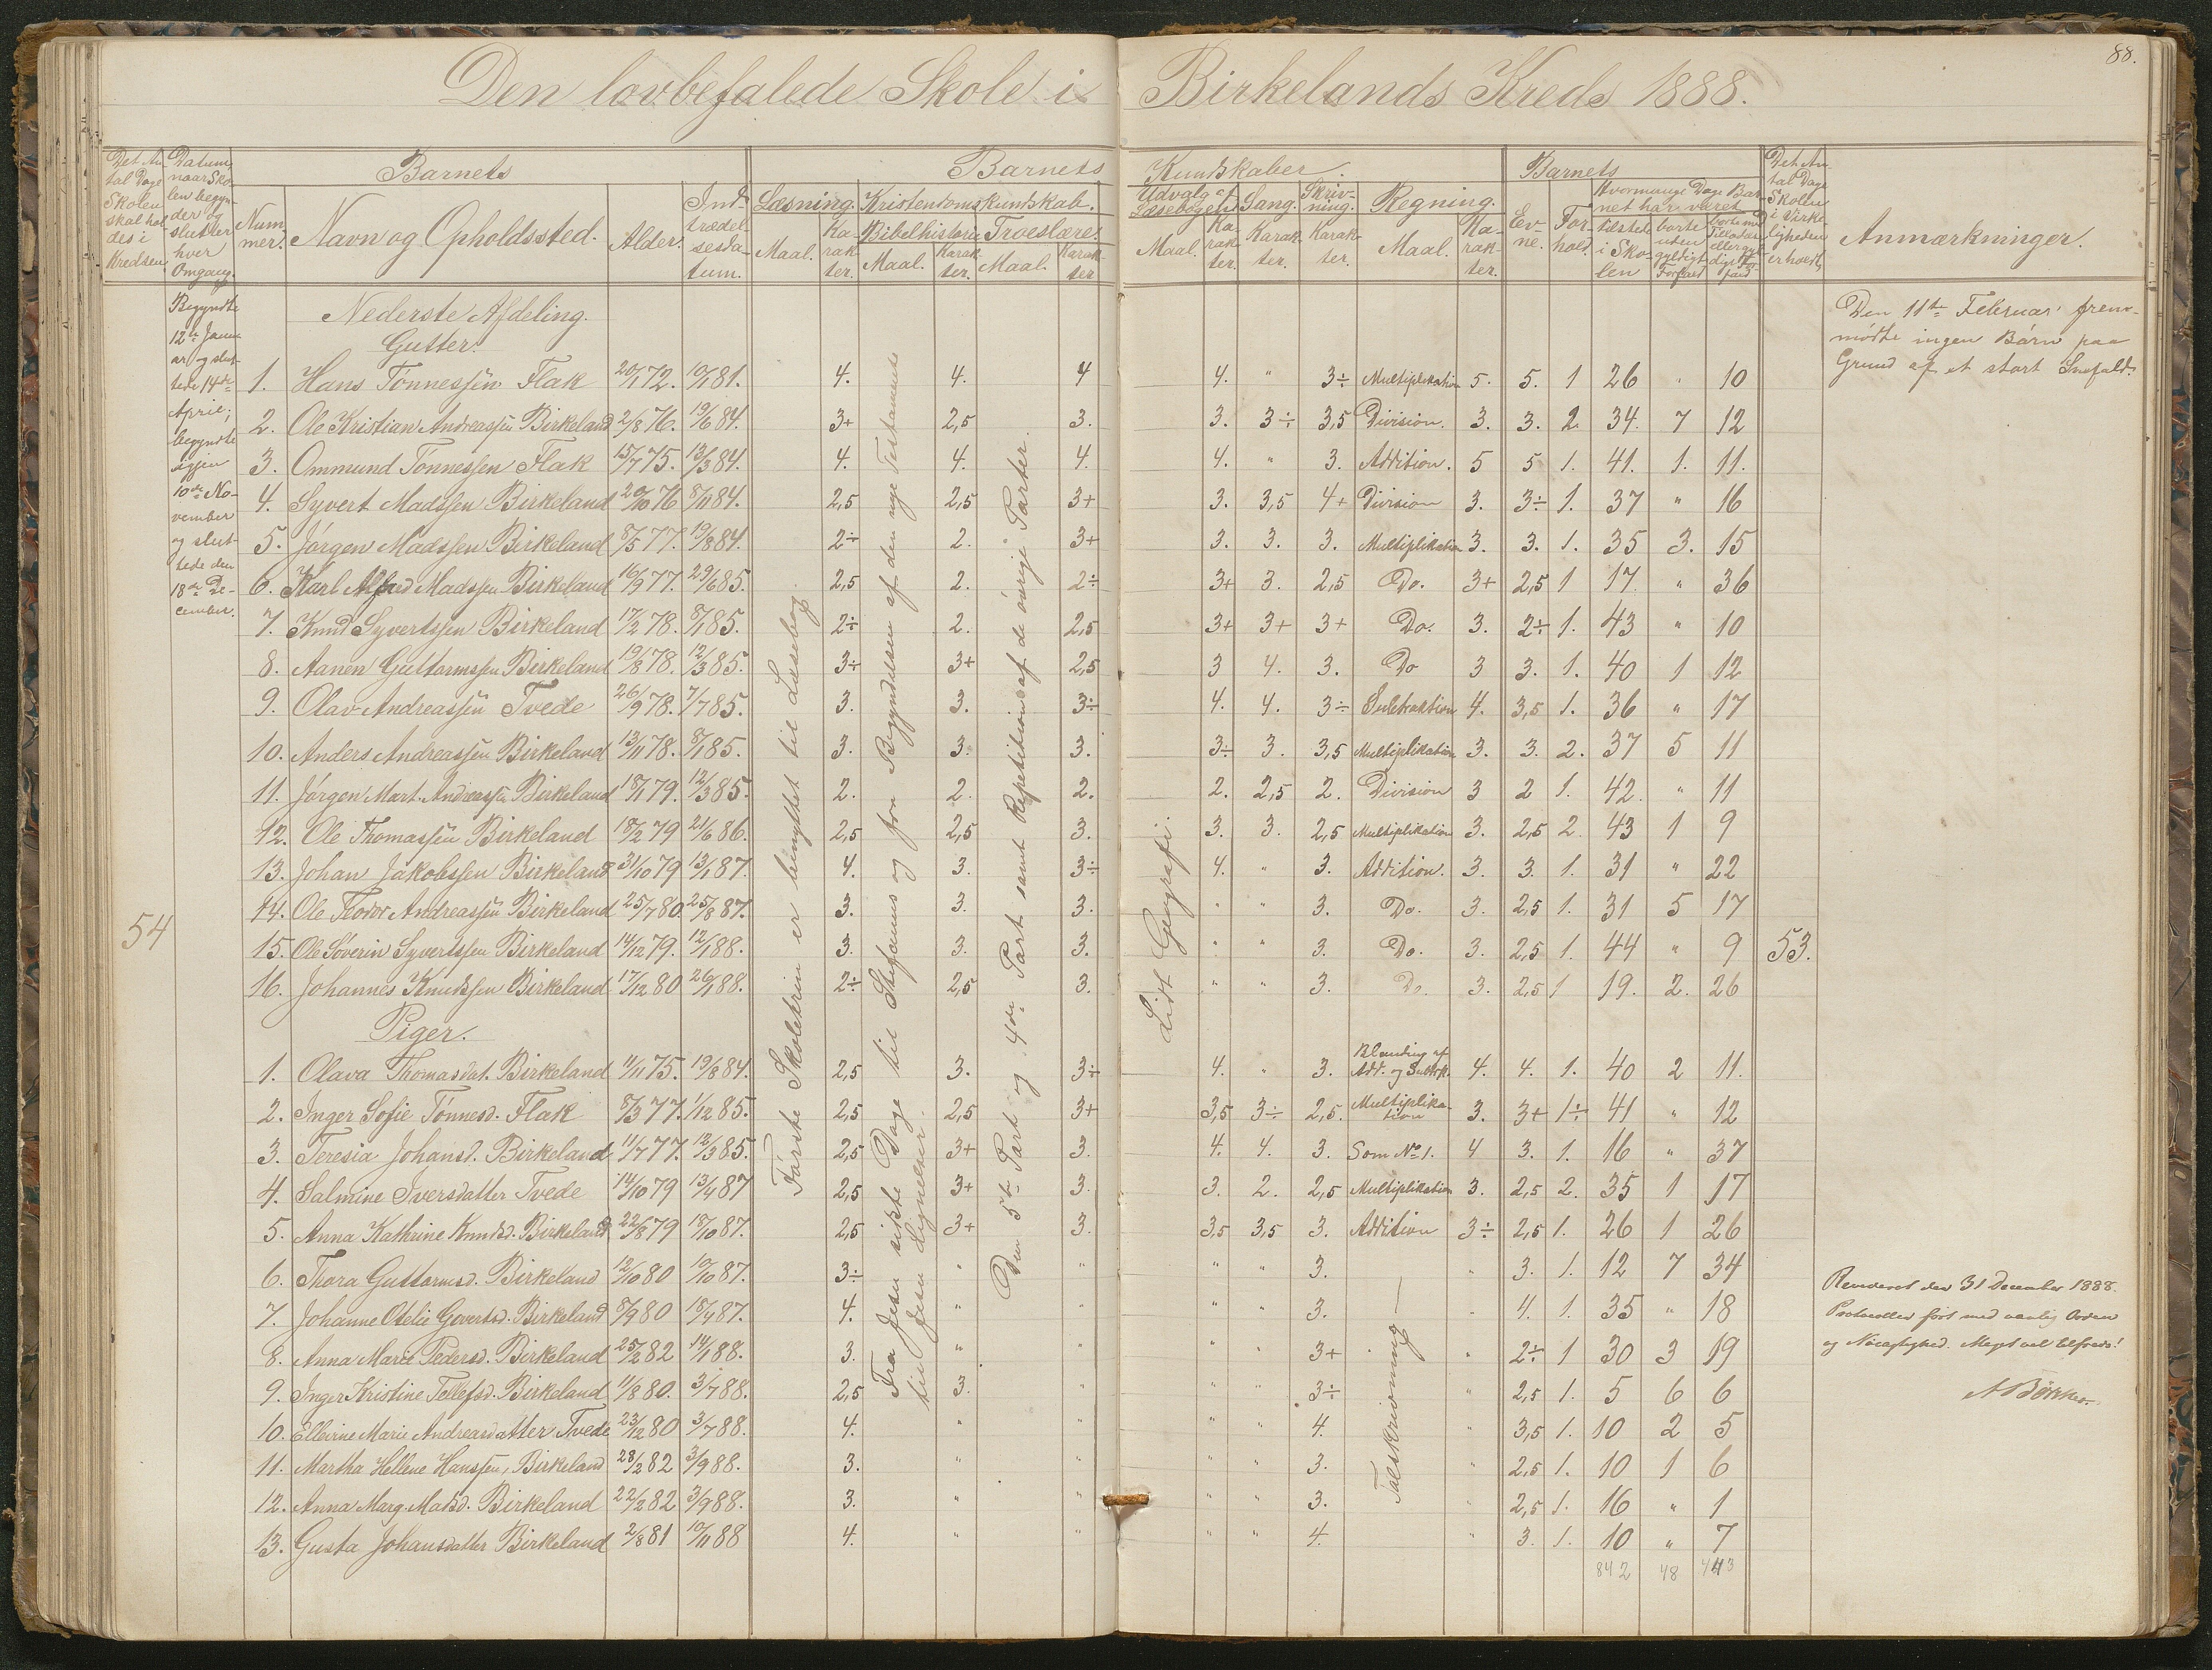 88.
Den lovbefalede Skole i Birkelands Kreds 1888.
Det An-
tal Dage
Skolen
skal hol
des i
Kredsen.
Datum,
naar Sko-
len begyn-
der og
slutter
hver
Omgang.
Barnets
Num-
mer.
Navn og Opholdssted.
Alder.
Ind-
trædel-
sesda-
tum.
Barnets Kundskaber.
Læsning.
Maal.
Ka-
rak-
ter.
Kristendomskundskab.
Bibelhistorie
Maal.
Karak-
ter.
Troeslære.
Maal.
Karak-
ter
Udvalg af
Læsebogen.
Maal.
Ka-
rak-
ter.
Sang.
Karak-
ter.
Skriv-
ning.
Karak-
ter.
Regning.
Maal.
Ka-
rak-
ter.
Barnets
Ev-
ne.
For-
hold.
Hvormange Dage Bar-
net har været
tilstede
i Sko-
len
borte
uden
gyldigt
Forfald
borte med
Tilladelse
eller gyl-
digt For-
fald
Det An-
tal Dage
Skolen
i Virke-
ligheden
er holdt.
Anmærkninger.
Begyndte
12te Janu-
ar og slut-
tede 14de
April;
begyndte
igjen
10de No-
vember
og slut-
tede den
18de De-
cember.
54
Nederste Afdeling.
Gutter.
1. Hans Tönnessen Flak 20/1 72. 10/1 81. 4. 4. 4 4. " 3÷ Multiplikation 5. 5. 1 26 " 10
2. Ole Kristian Andreassen Birkeland 2/8 76. 19/6 84. 3+ 2,5 3. 3. 3÷ 3,5 Division. 3. 3. 2. 34. 7 12
3. Ommund Tönnessen Flak 15/7 75. 13/3 84. 4. 4. 4. 4. " 3. Addition. 5 5 1. 41. 1. 11.
4. Syvert Madssen Birkeland 20/10 76 8/11 84. 2,5 2,5 3+ 3. 3,5 4+ Division 3. 3÷ 1. 37 " 16
5. Jörgen Madssen Birkeland 8/5 77. 19/8 84. 2÷ 2. 3+ 3. 3. 3. Multiplikation 3. 3. 1. 35 3. 15
6. Karl Alfred Madssen Birkeland 16/9 77. 29/6 85. 2,5 2. 2÷ 3+ 3. 2,5 Do. 3+ 2,5 1 17. " 36
7. Knud Syvertssen Birkeland 17/2 78. 8/1 85. 2÷ 2. 2,5 3+ 3+ 3+ Do. 3. 2÷ 1. 43 " 10
8. Aanen Guttormssen Birkeland 19/8 78. 12/3 85. 3÷ 3+ 2,5 3 4. 3. Do 3 3. 1. 40 1 12
9. Olav Andreassen Tvede 26/9 78. 7/7 85. 3. 3. 3÷ 4. 4. 3÷ Subtraktion 4. 3,5 1. 36 " 17
10. Anders Andreassen Birkeland 13/11 78. 8/1 85. 3. 3. 3. 3÷ 3. 3,5 Multiplikation 3. 3. 2. 37 5 11
11. Jörgen Mart. Andreassen Birkeland 18/1 79. 12/3 85. 2. 2. 2. 2. 2,5 2. Division 3 2 1. 42. " 11
12. Ole Thomassen Birkeland 18/2 79 21/6 86. 2,5 2,5 3. 3. 3. 2,5 Multiplikation 3. 2,5 2. 43 1 9
13. Johan Jakobssen Birkeland 31/10 79 13/1 87. 4. 3. 3÷ 4. " 3. Addition. 3. 3. 1. 31 " 22
14. Ole Teodor Andreassen Birkeland 25/7 80. 25/8 87. 3. 3. 3. " " 3. Do. 3. 2,5 1. 31 5 17
15. Ole Söverin Syvertssen Birkeland 14/12 79. 12/1 88. 3. 3. 3. " " 3. Do. 3. 2,5 1. 44 " 9 53.
16. Johannes Knudssen Birkeland 17/12 80 26/1 88. 2÷ 2,5 3. " " 3. Do. 3. 2,5 1 19. 2. 26
Piger.
1. Olava Thomasdat. Birkeland 11/11 75. 19/8 84. 2,5 3. 3÷ 4. " 3. Blanding af
Add. og Subtrk. 4. 4. 1. 40 2 11.
2. Inger Sofie Tönnesd. Flak 8/3 77. 1/12 85. 2,5 2,5 3+ 3,5 3÷ 2,5. Multiplika-
tion 3. 3+ 1÷ 41 " 12
3. Teresia Johansd. Birkeland 11/7 77. 12/3 85. 2,5 3+ 3. 4. 4. 3. Som No 1. 4 3. 1. 16 " 37
4. Salmine Iversdatter Tvede 14/10 79 13/4 87 2,5 3+ 3. 3. 2. 2,5 Multiplikation 3. 2,5 2. 35 1 17
5. Anna Kathrine Knudsd. Birkeland 22/8 79 18/10 87. 2,5 3+ 3. 3,5 3,5 3. Addition 3÷ 2,5 1. 26 1 26
6. Thora Guttormsd. Birkeland 12/10 80 10/10 87. 3÷ " " " " 3. " 3. 1. 12 7 34
7. Johanne Otelie Govertsd. Birkeland 8/9 80 18/4 87. 4. " " " " 3. " 4. 1. 35 " 18
8. Anna Marie Pedersd. Birkeland 25/2 82 14/1 88. 3. " " " " 3+ " 2÷ 1 30 3 19
9. Inger Kristine Tellefsd. Birkeland 11/8 80. 3/7 88. 2,5 3. " " " 3÷ " 2,5 1. 5 6 6
10. Elleirne Marie Andreasdatter Tvede 23/12 80 3/7 88. 4. " " " " 4. " 3,5 1. 10 2 5
11. Martha Hellene Hanssen, Birkeland 28/2 82 3/9 88. 3. " " " " 3. " 2,5 1. 10 1 6
12. Anna Marg. Madsd. Birkeland 22/2 82 3/9 88. 3. " " " " 3. " 2,5 1. 16 " 1
13. Gusta Johansdatter Birkeland 2/8 81 10/11 88 4. " " " " 4. " 3. 1. 10 " 7
842 48 443
Förste Skoletrin er benyttet til Læsebog.
Fra Jesu sidste Dage til Stefanus og fra Begyndelsen af den nye Testamente
til Jesu Lignelser.
Den 5te Part og 4de Part samt Repetition af de övrige Parter.
Lidt Geografi.
Talskrivning
Den 11te Februar frem-
mödte ingen Börn paa
Grund af et stort Snefald.
Revideret den 31 December 1888.
Protocollen fört med vanlig Orden
og Nöiagtighed. Meget vel tilfreds!